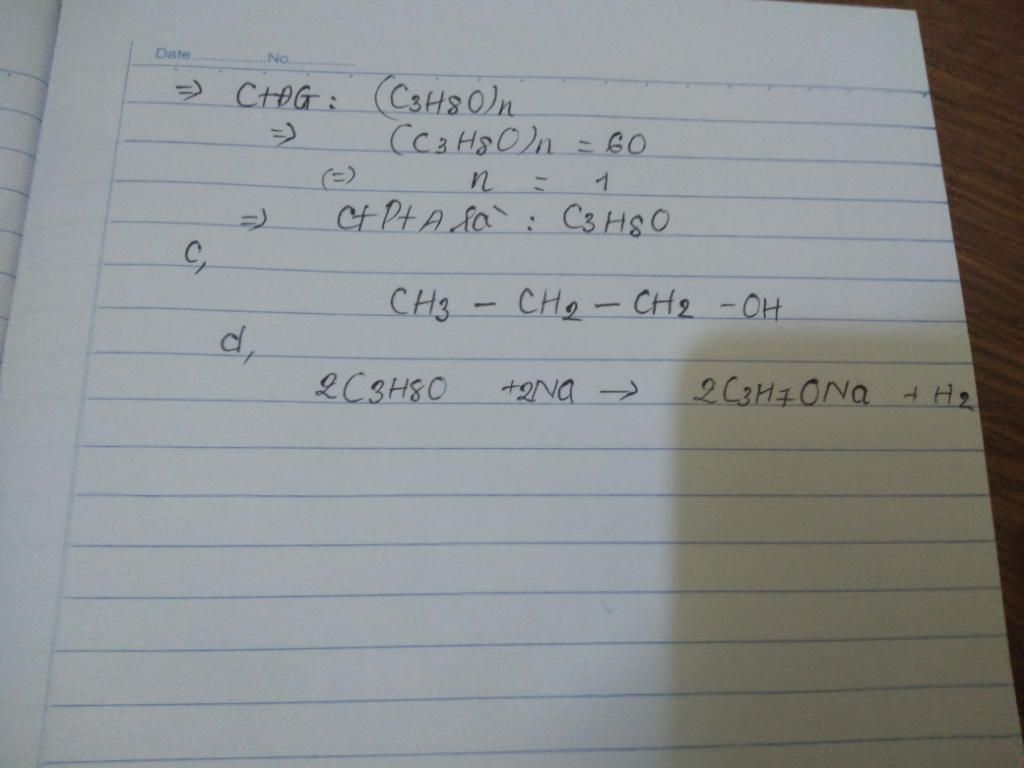 Date..................No..................
=> CTĐG : (C3H8O)n
=> (C3H8O)n = 60
(=) n = 1
=> CTPT A là : C3H8O
c,
CH3 - CH2 - CH2 - OH
d,
2C3H8O +2Na → 2C3H7ONa + H2